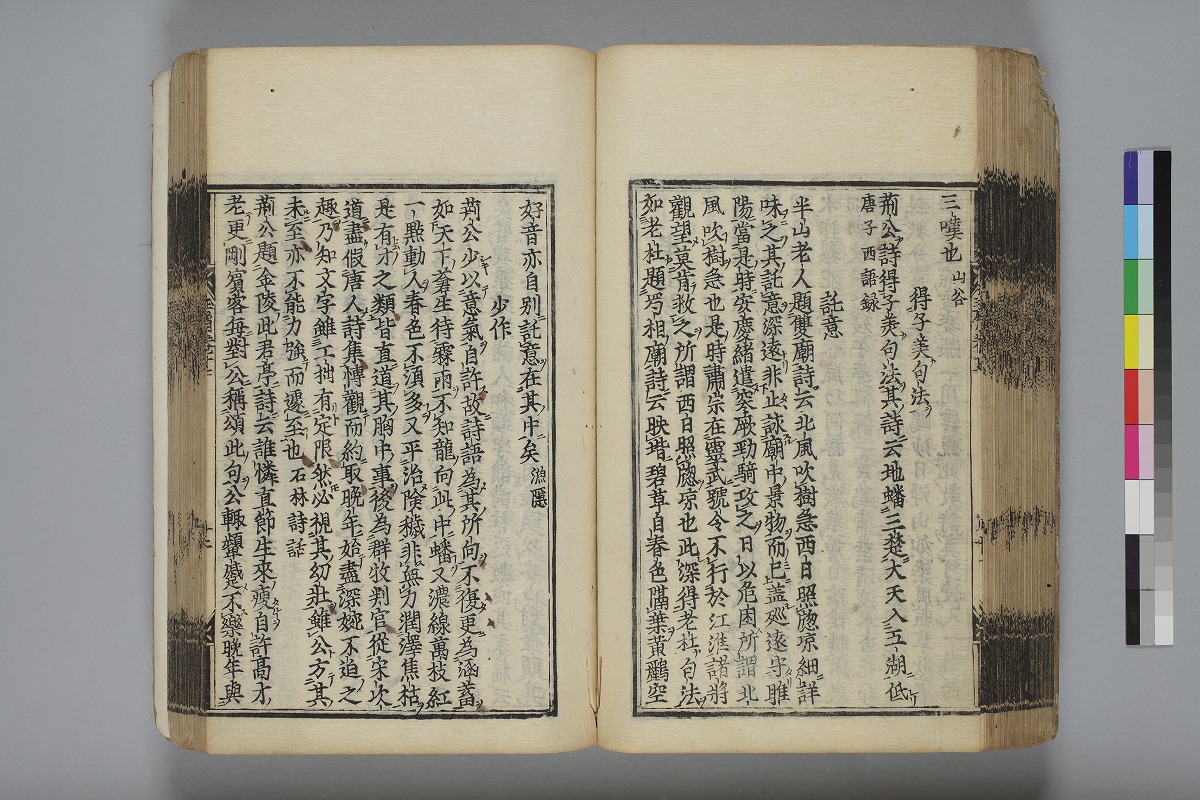 三嘆也 山谷
得子美句法
荊公詩得子美句法其詩云地蟠三楚大天入五湖低
唐子西語錄
託意
半山老人題雙廟詩云北風吹樹急西日照窓凉細詳
味之其託意深遠非止詠廟中景物而已蓋廵遠守睢
陽當是時安慶緒遣突厥勁騎攻之日以危困所謂北
風吹樹急也是時肅宗在靈武號令不行於江淮諸將
觀望莫肯救之所謂西日照窓凉也此深得老杜句法
如老杜題蜀相廟詩云映堦碧草自春色隔葉黃鸝空
好音亦自別託意在其中矣 漁隱
少作
荊公少以意氣自許故詩語為其所向不復更為涵蓄
如天下蒼生待霖雨不知龍向此中蟠又濃綠萬枝紅
一點動人春色不須多又平治險穢非無力潤澤焦枯
是有才之類皆直道其胸中事後為群牧判官從宋次
道盡假唐人詩集博觀而約取晚年始盡深婉不迫之
趣乃知文字雖工拙有定限然必視其幼壯雖公方其
未至亦不能力強而遽至也 石林詩話
荊公題金陵此君亭詩云誰憐直節生來瘦自許高才
老更剛賓客每對公稱頌此句公輙顰蹙不樂晚年與